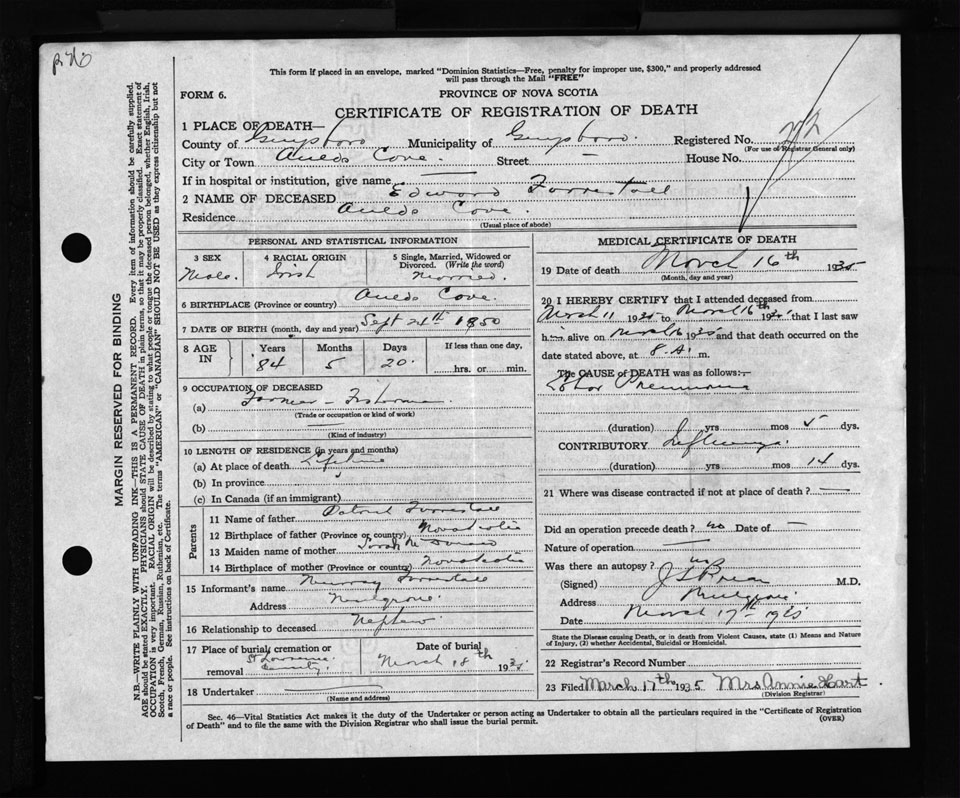 This form if placed in an envelope, marked "Dominion Statistics—Free, penalty for improper use, $300," and properly addressed
will pass through the Mail "FREE"
FORM 6.
PROVINCE OF NOVA SCOTIA
CERTIFICATE OF REGISTRATION OF DEATH
1 PLACE OF DEATH—
County of Guysboro Municipality of Guysboro. Registered No.
(For use of Registrar General only)
City or Town Aulds Cove. Street — House No.
If in hospital or institution, give name —
2 NAME OF DECEASED Edward Forrestall
Residence Aulds Cove.
(Usual place of abode)
PERSONAL AND STATISTICAL INFORMATION
3 SEX
Male.
4 RACIAL ORIGIN
Irish
5 Single, Married, Widowed or
Divorced. (Write the word)
Married.
6 BIRTHPLACE (Province or country) Aulds Cove.
7 DATE OF BIRTH (month, day and year) Sept 24th 1850
8 AGE
IN
Years
84
Months
5
Days
20
If less than one day,
hrs. or min.
9 OCCUPATION OF DECEASED
(a) Farmer – Fisherman
(Trade or occupation or kind of work)
(b) —
(Kind of industry)
10 LENGTH OF RESIDENCE (in years and months)
(a) At place of death Lifetime
(b) In province
(c) In Canada (if an immigrant)
Parents
11 Name of father Patrick Forrestall
12 Birthplace of father (Province or country) Nova Scotia
13 Maiden name of mother Sarah
14 Birthplace of mother (Province or country) Nova Scotia
15 Informant's name Murray Forrestall
Address Mulgrave
16 Relationship to deceased Nephew
17 Place of burial, cremation or
removal St Lawrence
Date of burial
March 18th 1935
18 Undertaker —
(Name and address)
MEDICAL CERTIFICATE OF DEATH
19 Date of death March 16th 1935
(Month, day and year)
20 I HEREBY CERTIFY that I attended deceased from
March 11 1935 to March 16th 1935 that I last saw
him alive on March 16 1935 and that death occurred on the
date stated above, at 8 A. m.
The CAUSE OF DEATH was as follows:—
Lobar Pneumonia
(duration) yrs mos 5 dys.
CONTRIBUTORY Influenza.
(duration) yrs mos 14 dys.
21 Where was disease contracted if not at place of death? —
Did an operation precede death? no Date of —
Nature of operation —
Was there an autopsy? no
(Signed) M.D.
Address Mulgrave
Date March 17th 1935
State the Disease causing Death, or in death from Violent Causes, state (1) Means and Nature
of Injury, (2) whether Accidental, Suicidal or Homicidal.
22 Registrar's Record Number
23 Filed March 17th 1935 Mrs Annie Hart
(Division Registrar)
Sec. 46—Vital Statistics Act makes it the duty of the Undertaker or person acting as Undertaker to obtain all the particulars required in the "Certificate of Registration
of Death" and to file the same with the Division Registrar who shall issue the burial permit.
(OVER)
MARGIN RESERVED FOR BINDING
N.B.—WRITE PLAINLY WITH UNFADING INK—THIS IS A PERMANENT RECORD. Every item of information should be carefully supplied.
AGE should be stated EXACTLY. PHYSICIANS should STATE CAUSE OF DEATH in plain terms, so that it may be properly classified. Exact statement of
OCCUPATION is very important. RACIAL ORIGIN will be described by stating to what people or tongue the deceased person belonged, whether English, Irish,
Scotch, French, German, Russian, Ruthenian, etc. The terms "AMERICAN" or "CANADIAN" SHOULD NOT BE USED as they express citizenship but not
a race or people. See instructions on back of Certificate.